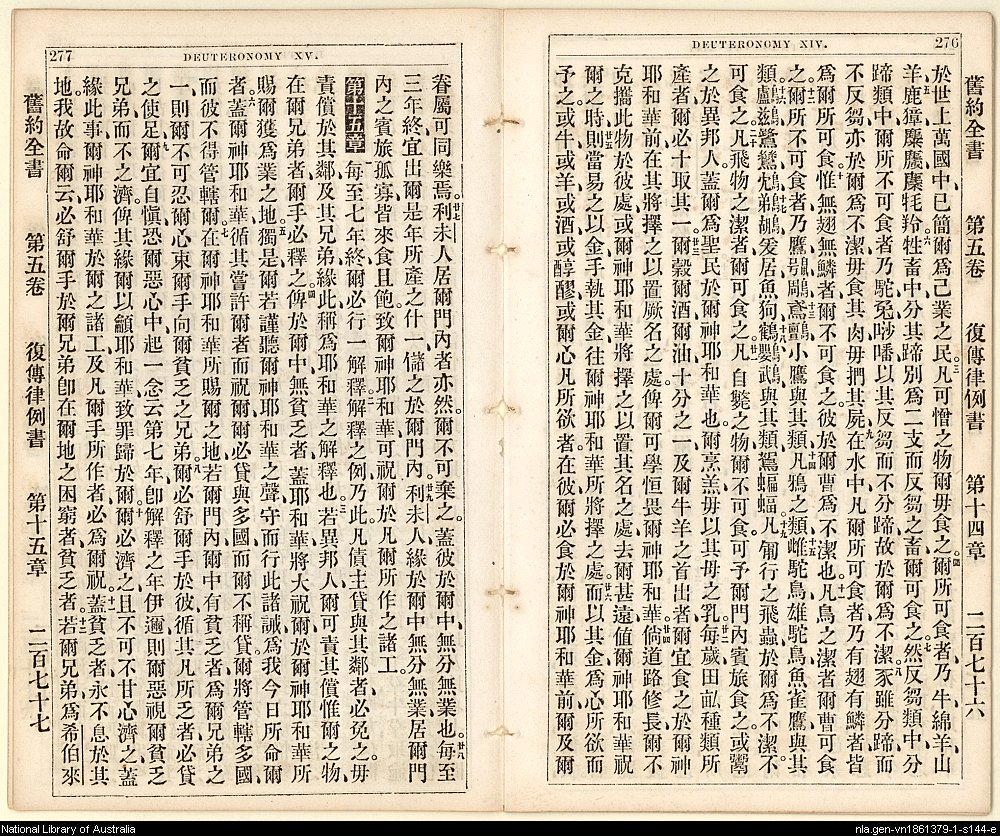 DEUTERONOMY XIV.
276
舊約全書 第五卷 復傳律例書 第十四章 二百七十六
於世上萬國中、已簡爾爲己業之民。三凡可憎之物爾毋食之。四爾所可食者、乃牛、綿羊、山
羊、五鹿、獐、麋、麇、牦、羚牲。六畜中分其蹄別爲二支而反芻之畜、爾可食之。七然反芻類中、分
蹄類中、爾所不可食者、乃駝、兔、唦噃、以其反芻而不分蹄、故於爾爲不潔。八豕雖分蹄而
不反芻、亦於爾爲不潔、毋食其肉、毋捫其屍。九在水中凡爾所可食者、乃有翅有鱗者、皆
爲爾所可食、十惟無翅無鱗者、爾不可食之、彼於爾曹爲不潔也。十一凡鳥之潔者、爾曹可食
之。十二爾所不可食者、乃鷹、鶚、鵰、十三鳶、鸇、小鷹與其類、十四凡鴉之類、十五雌駝鳥、雄駝鳥、魚雀、鷹與其
類、十六鸕鶿、鷺、十七鵜鶘、爰居、魚狗、十八鶴、鸚鵡與其類、鴽、蝙蝠、十九凡匍行之飛蟲、於爾爲不潔、不
可食之。二十凡飛物之潔者、爾可食之。廿一凡自斃之物爾不可食、可予爾門內賓旅食之、或鬻
之於異邦人、蓋爾爲聖民於爾神耶和華也。爾烹羔毋以其母之乳。廿二每歲田畝種類所
產者、爾必十取其一。廿三爾穀、爾酒、爾油、十分之一、及爾牛羊之首出者、爾宜食之於爾神
耶和華前、在其將擇之以置厥名之處、俾爾可學恒畏爾神耶和華。廿四倘道路修長、爾不
克攜此物於彼處、或爾神耶和華將擇之以置其名之處、去爾甚遠、値爾神耶和華祝
爾之時、廿五則當易之以金、手執其金、往爾神耶和華所將擇之處、廿六而以其金、爲心所欲而
予之、或牛、或羊、或酒、或醇醪、或爾心凡所欲者、在彼爾必食於爾神耶和華前、爾及爾
277
DEUTERONOMY XV.
眷屬可同樂焉。廿七利未人居爾門內者亦然、爾不可棄之、蓋彼於爾中、無分無業也。廿八每至
三年終、宜出爾是年所產之什一、儲之於爾門內。廿九利未人緣於爾中無分無業、居爾門
內之賓旅孤寡、皆來食且飽、致爾神耶和華可祝爾於凡爾所作之諸工。
第十五章 一每至七年終、爾必行一解釋、二解釋之例乃此、凡債主貸與其鄰者、必免之、毋
責償於其鄰及其兄弟、緣此稱爲耶和華之解釋也。三若異邦人、爾可責其償、惟爾之物、
在爾兄弟者、爾手必釋之。四俾於爾中無貧乏者、蓋耶和華將大祝爾於爾神耶和華所
賜爾獲爲業之地、五獨是爾若謹聽爾神耶和華之聲、守而行此諸誡、爲我今日所命爾
者、六蓋爾神耶和華循其嘗許爾者而祝爾、爾必貸與多國、而爾不稱貸、爾將管轄多國、
而彼不得管轄爾。七在爾神耶和華所賜爾之地、若爾門內爾中、有貧乏者、爲爾兄弟之
一、則爾不可忍爾心、束爾手、向爾貧乏之兄弟、八爾必舒爾手於彼、循其凡所乏者、必貸
之使足。九爾宜自愼、恐爾惡心中起一念云、第七年卽解釋之年伊邇、則爾惡視爾貧乏
兄弟而不之濟、俾其緣爾以籲耶和華、致罪歸於爾。十爾必濟之、且不可不甘心濟之、蓋
緣此事、爾神耶和華於爾之諸工、及凡爾手所作者、必爲爾祝。十一蓋貧乏者永不息於其
地、我故命爾云、必舒爾手於爾兄弟、卽在爾地之困窮者貧乏者。十二若爾兄弟爲希伯來
舊約全書 第五卷 復傳律例書 第十五章 二百七十七
National Library of Australia
nla.gen-vn1861379-1-s144-e